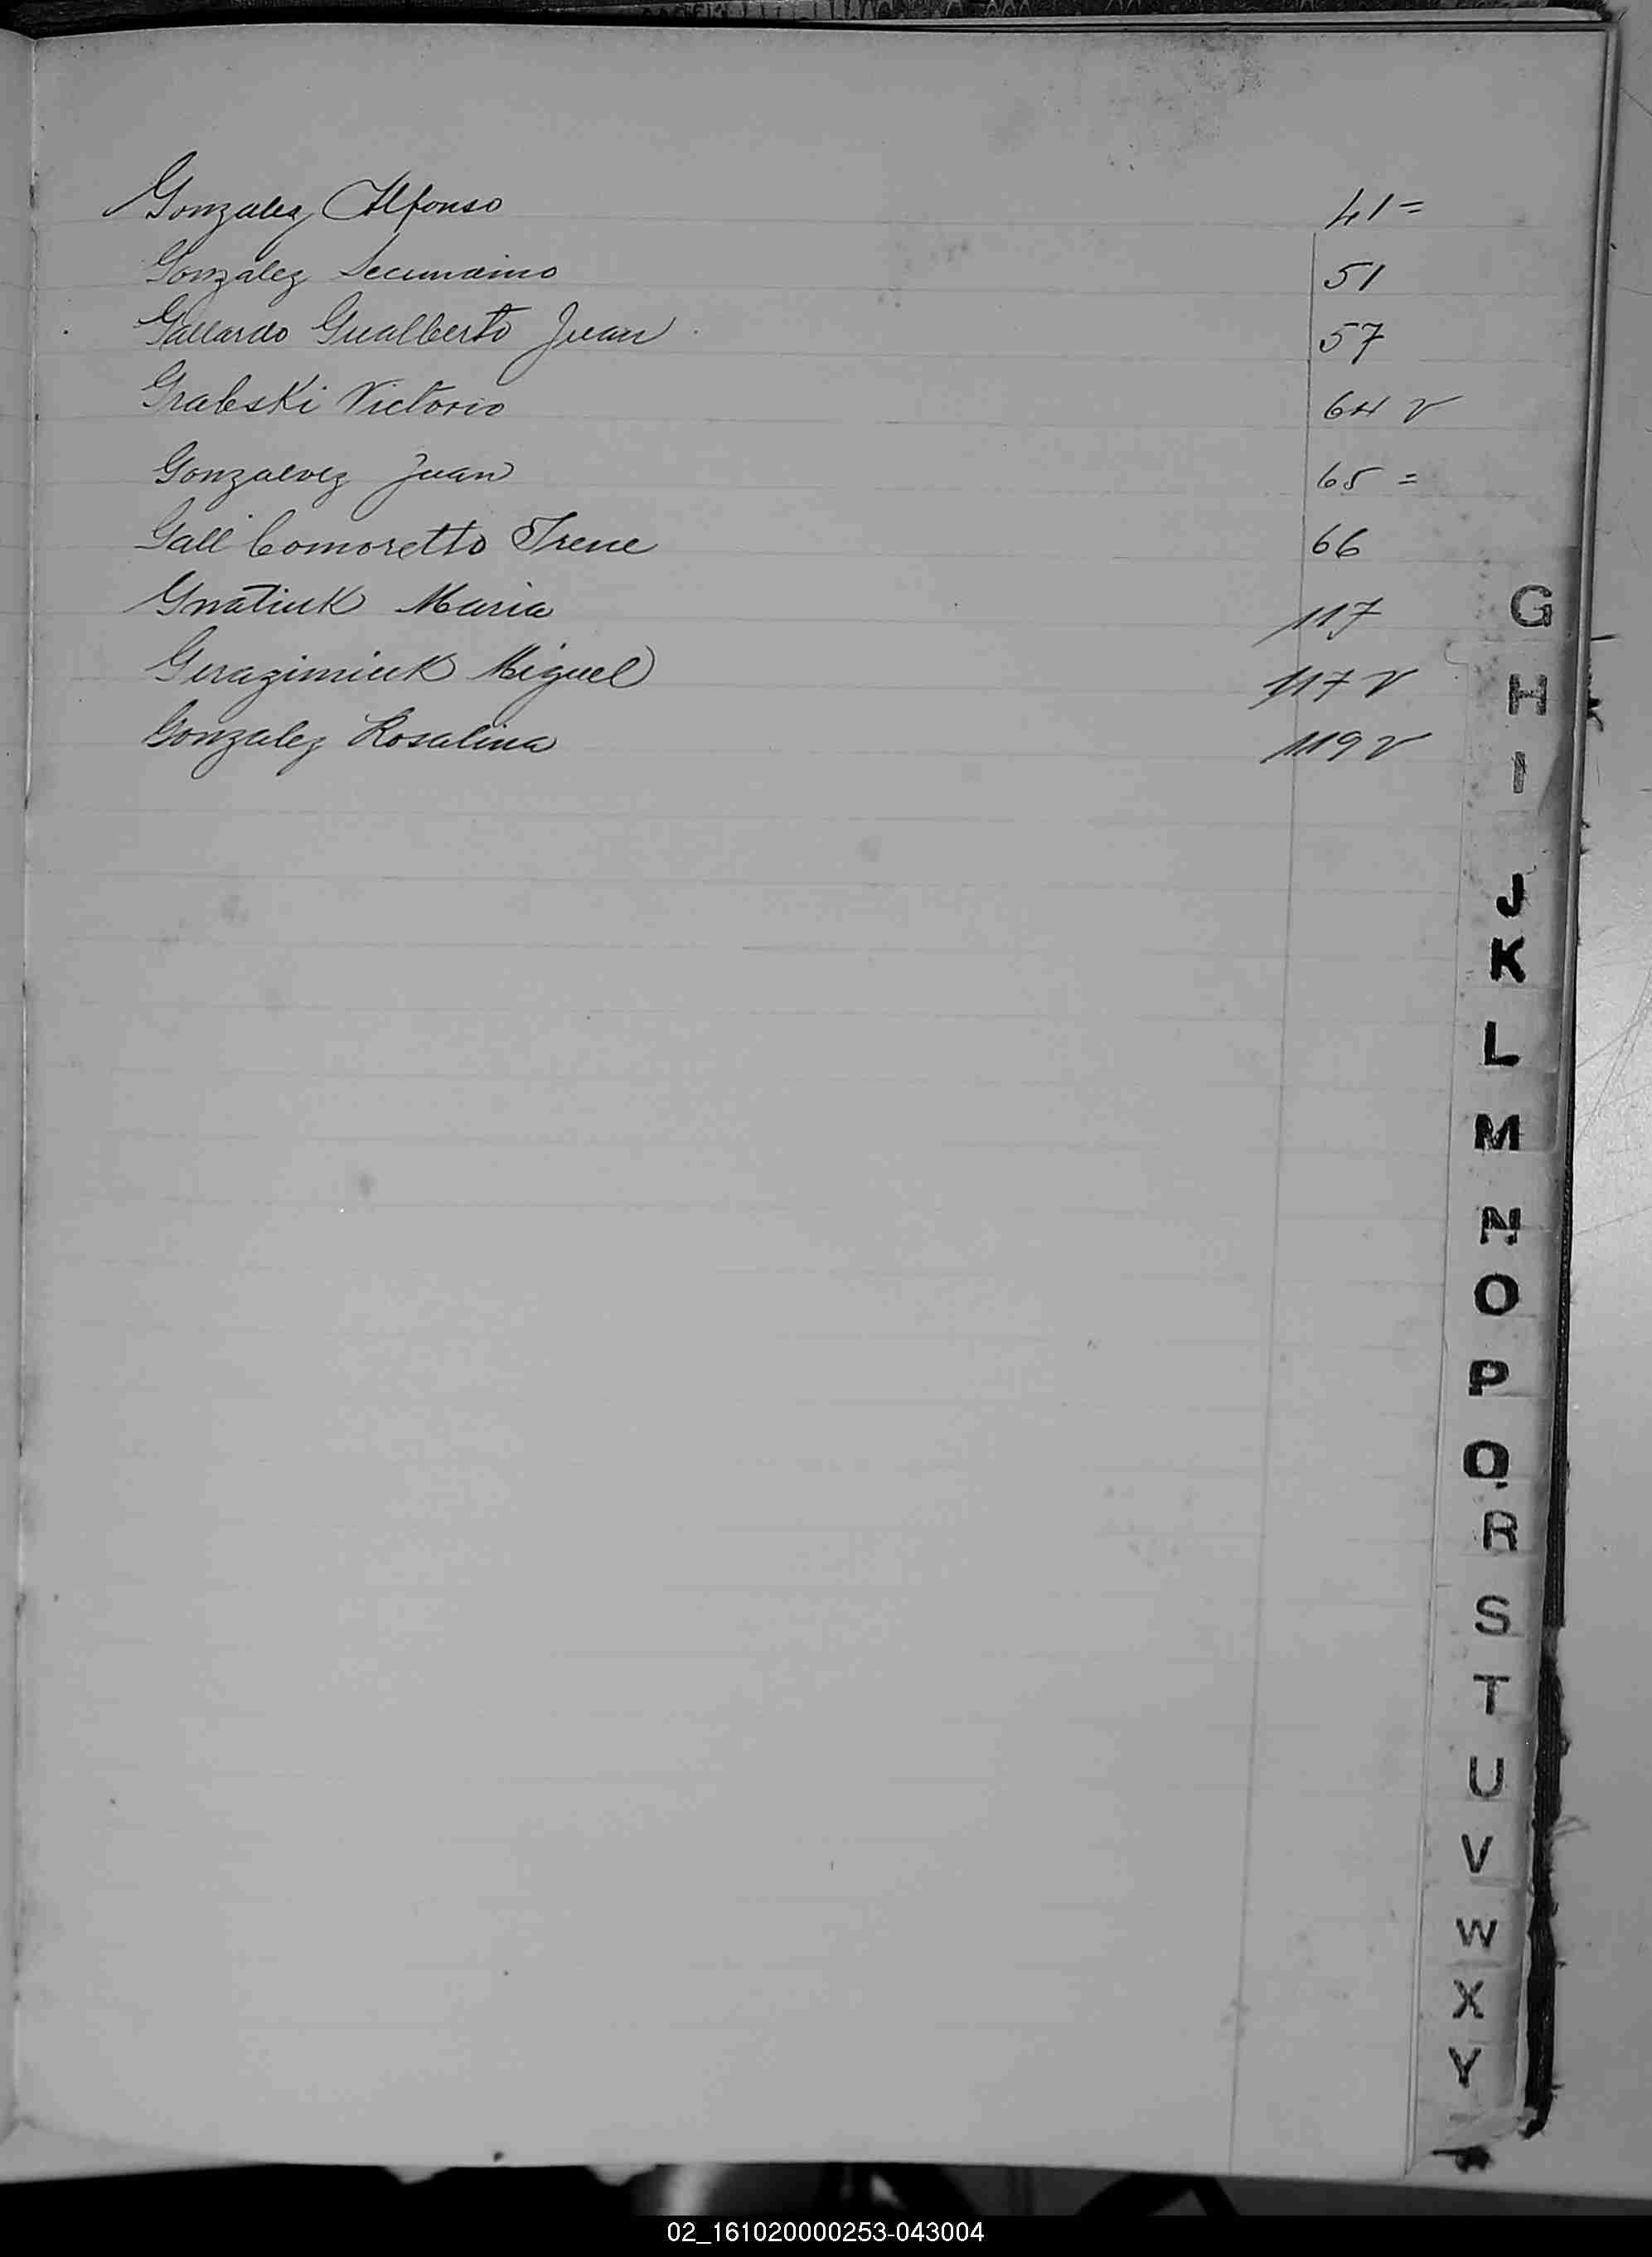 Gonzalez Alfonso 41=
Gonzalez Secundino 51
Gallardo Gualberto Juan 57
Grabski Victorio 64 v
Gonzalvez Juan 65 =
Gall Comoretto Irene 66
Gnatiuk Maria 117
Gerazimiuk Miguel 117 v
Gonzalez Rosalina 119 v
G
H
I
J
K
L
M
N
O
P
Q
R
S
T
U
V
W
X
Y
02_161020000253-043004